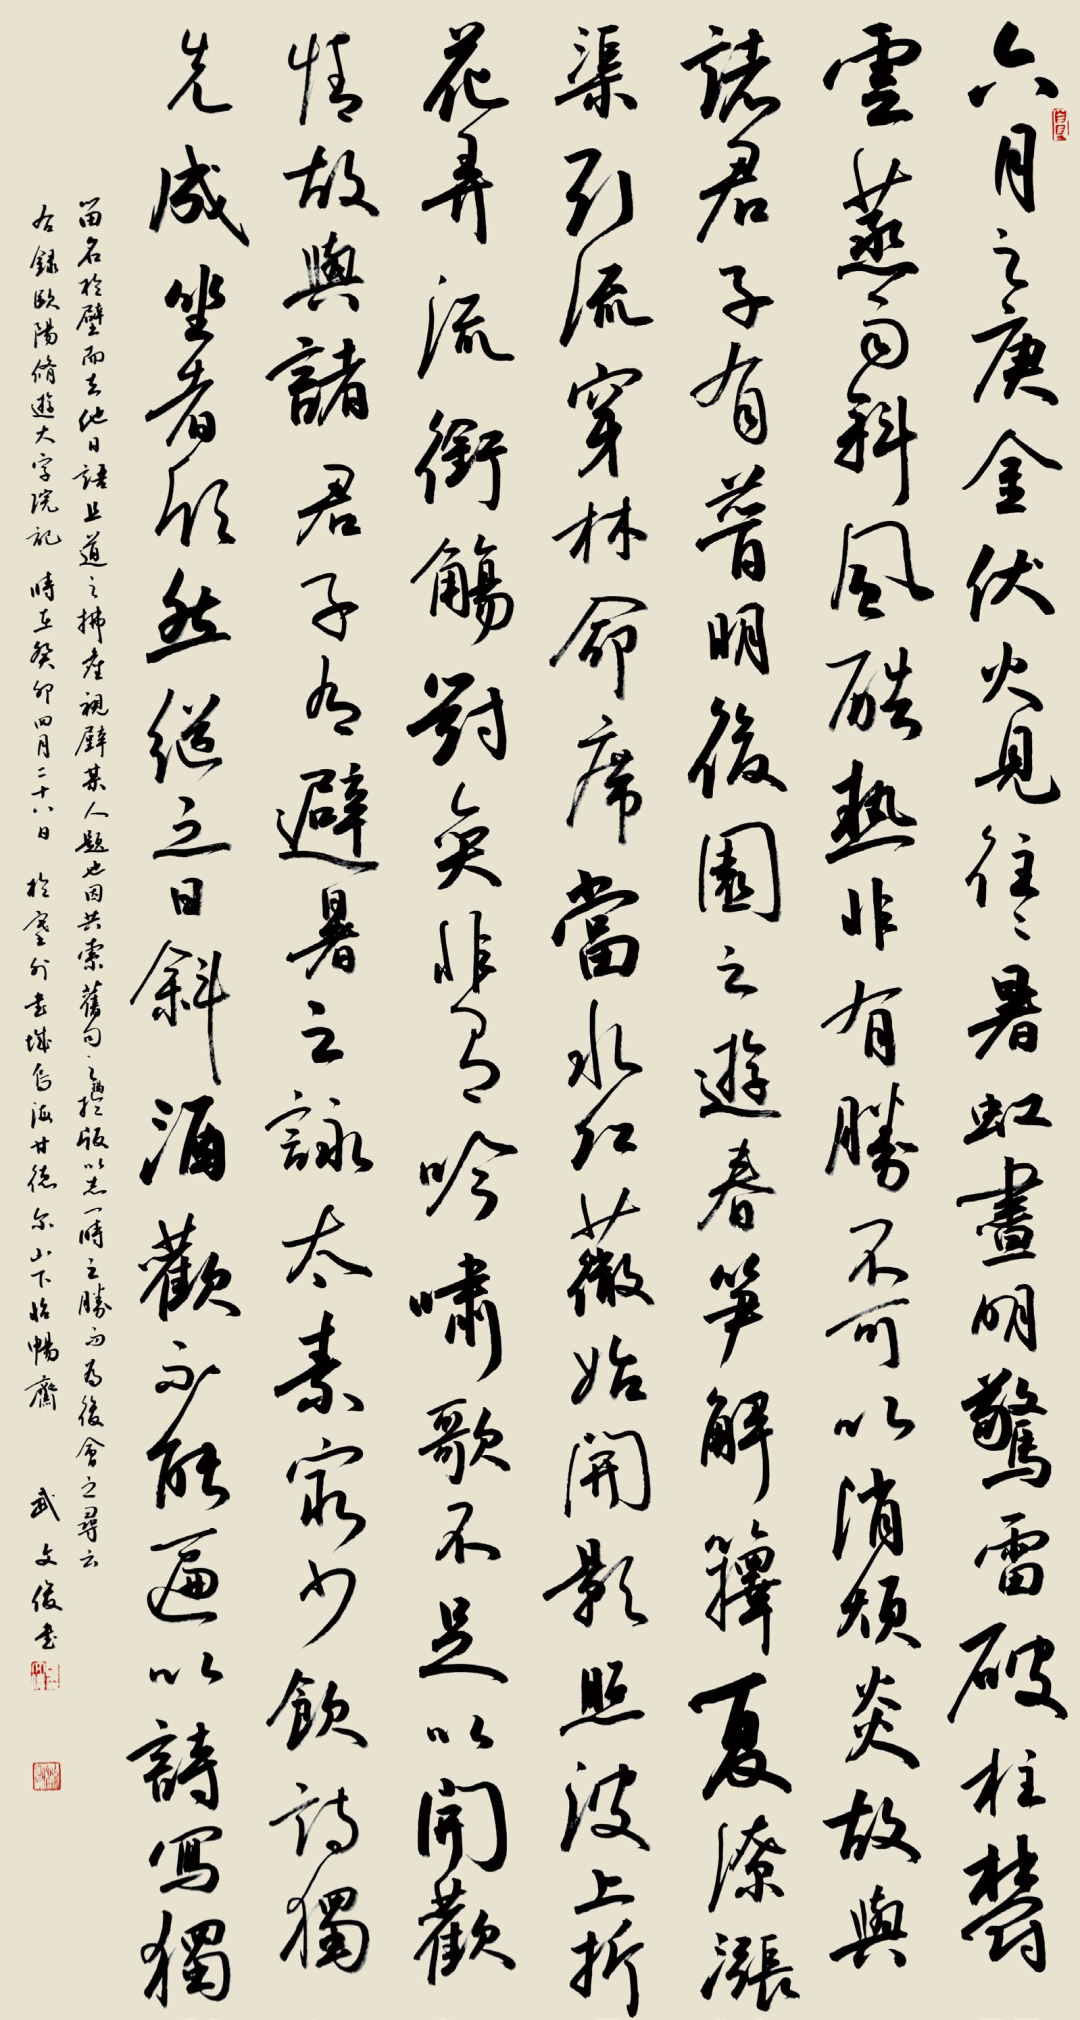 六月之庚金伏火見往々暑虹晝明驚雷破柱鬱
雲蒸雨斜風酷熱非有勝不可以消煩炎故與
諸君子有普明後園之遊春笋解籜夏潦漲
渠引流穿林命席當水紅薇始開影照波上折
花弄流銜觴對奕非有吟嘯歌不足以開歡
情故與諸君子有避暑之詠太素最少飲詩獨
先成坐者欣然繼之日斜酒歡不能遍以詩寫獨
留名於壁而去他日語且道之拂塵視壁某人題也因共索舊句之揭版以志一時之勝而為後會之尋云
右錄歐陽脩遊大字院記 時在癸卯四月二十八日 於塞外書城烏海甘德尔山下怡暢齋 武文俊書